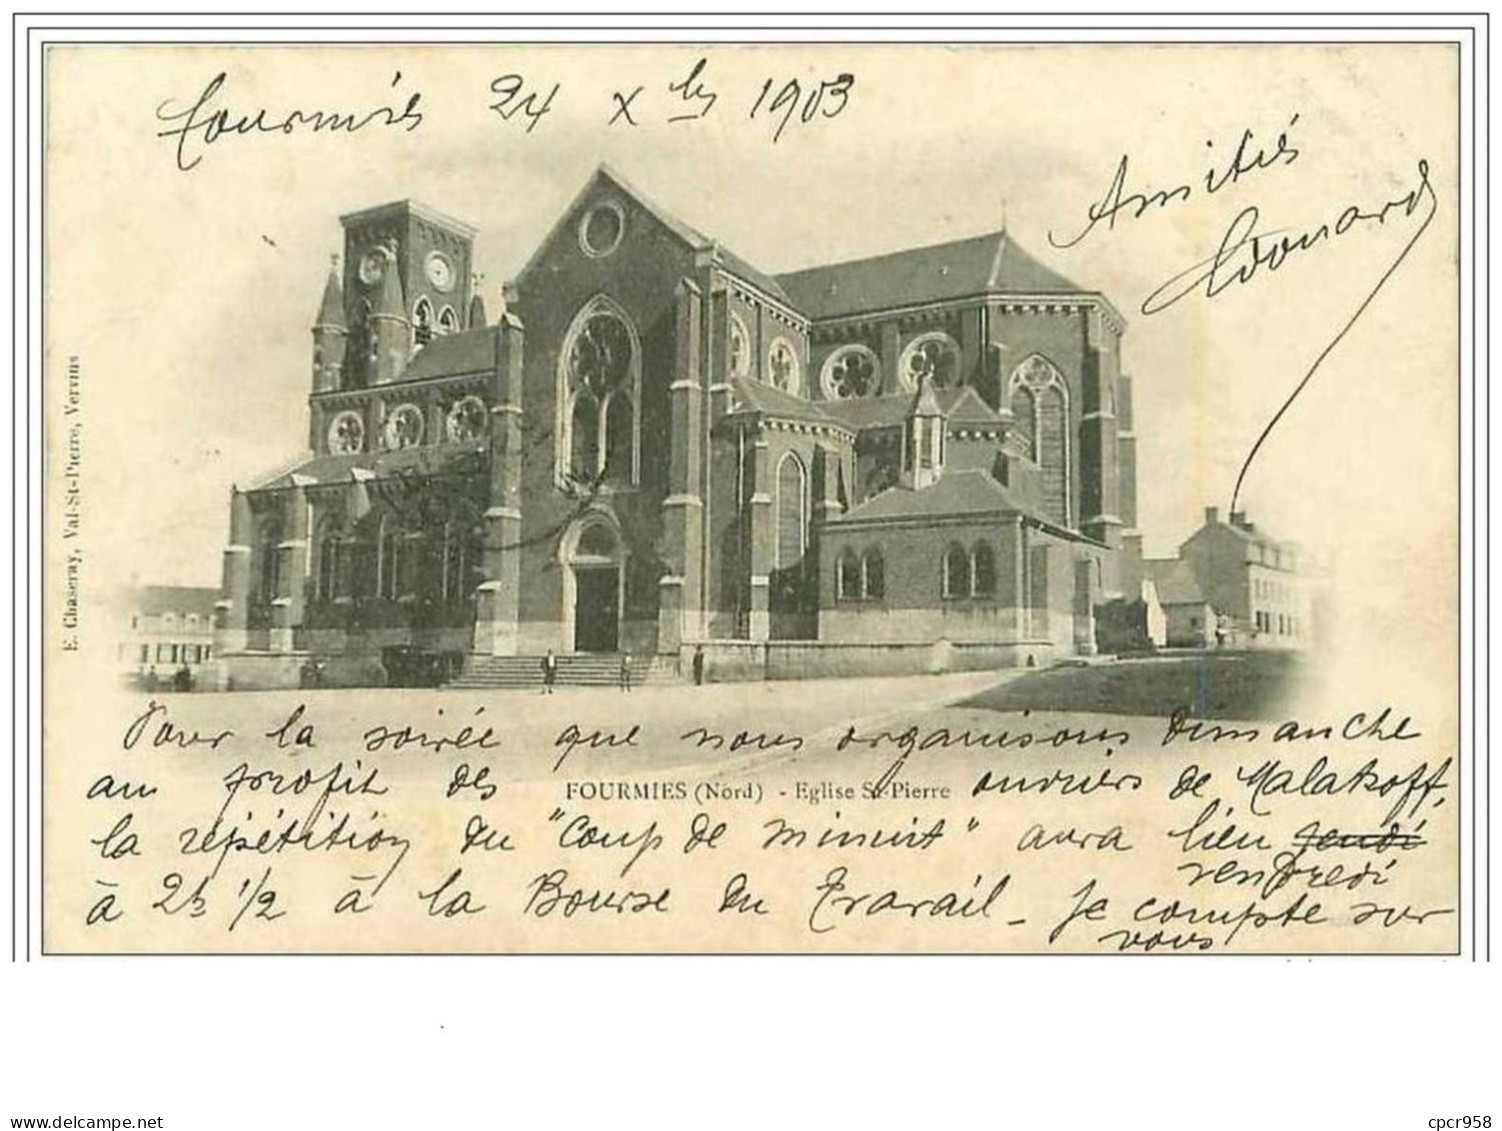 Fourmies 24 Xbre 1903
Amitiés
Edouard
E. Chaseray, Val-St-Pierre, Vervins
Pour la soirée que nous organisons Dimanche
au profit des ouvriers de Malakoff,
FOURMIES (Nord) - Eglise St-Pierre
la répétition du "Coup de minuit" aura lieu jeudi
vendredi
à 2h 1/2 à la Bourse du Travail - Je compte sur
vous
www.delcampe.net
cpcr958